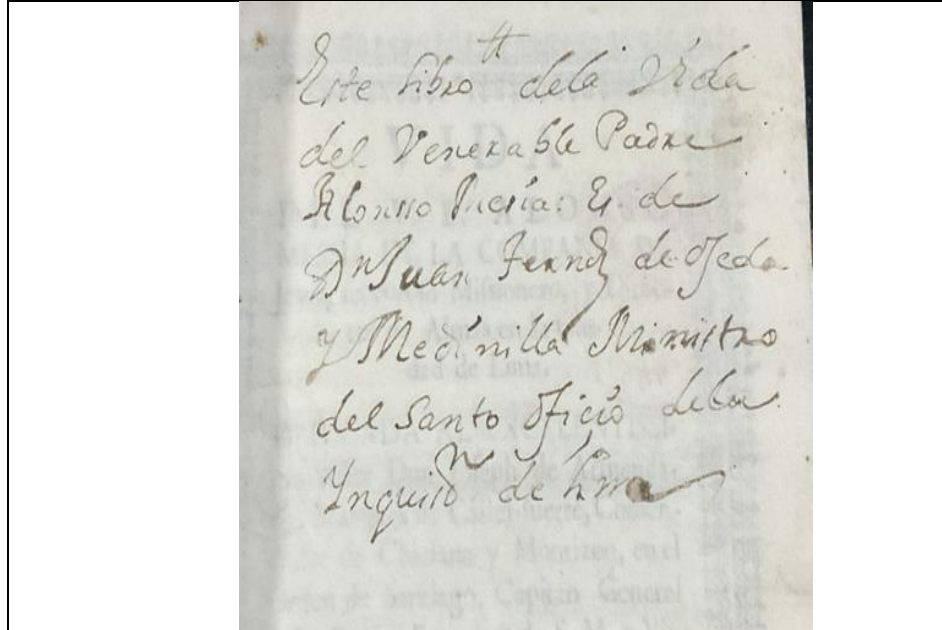 tt
Este libro dela Vida
del Venerable Padre
Alonsso Mesía: Es de
Dn Juan Fernz de Ojeda
y Medinilla Ministro
del Santo Oficio dela
Ynquison de Lima